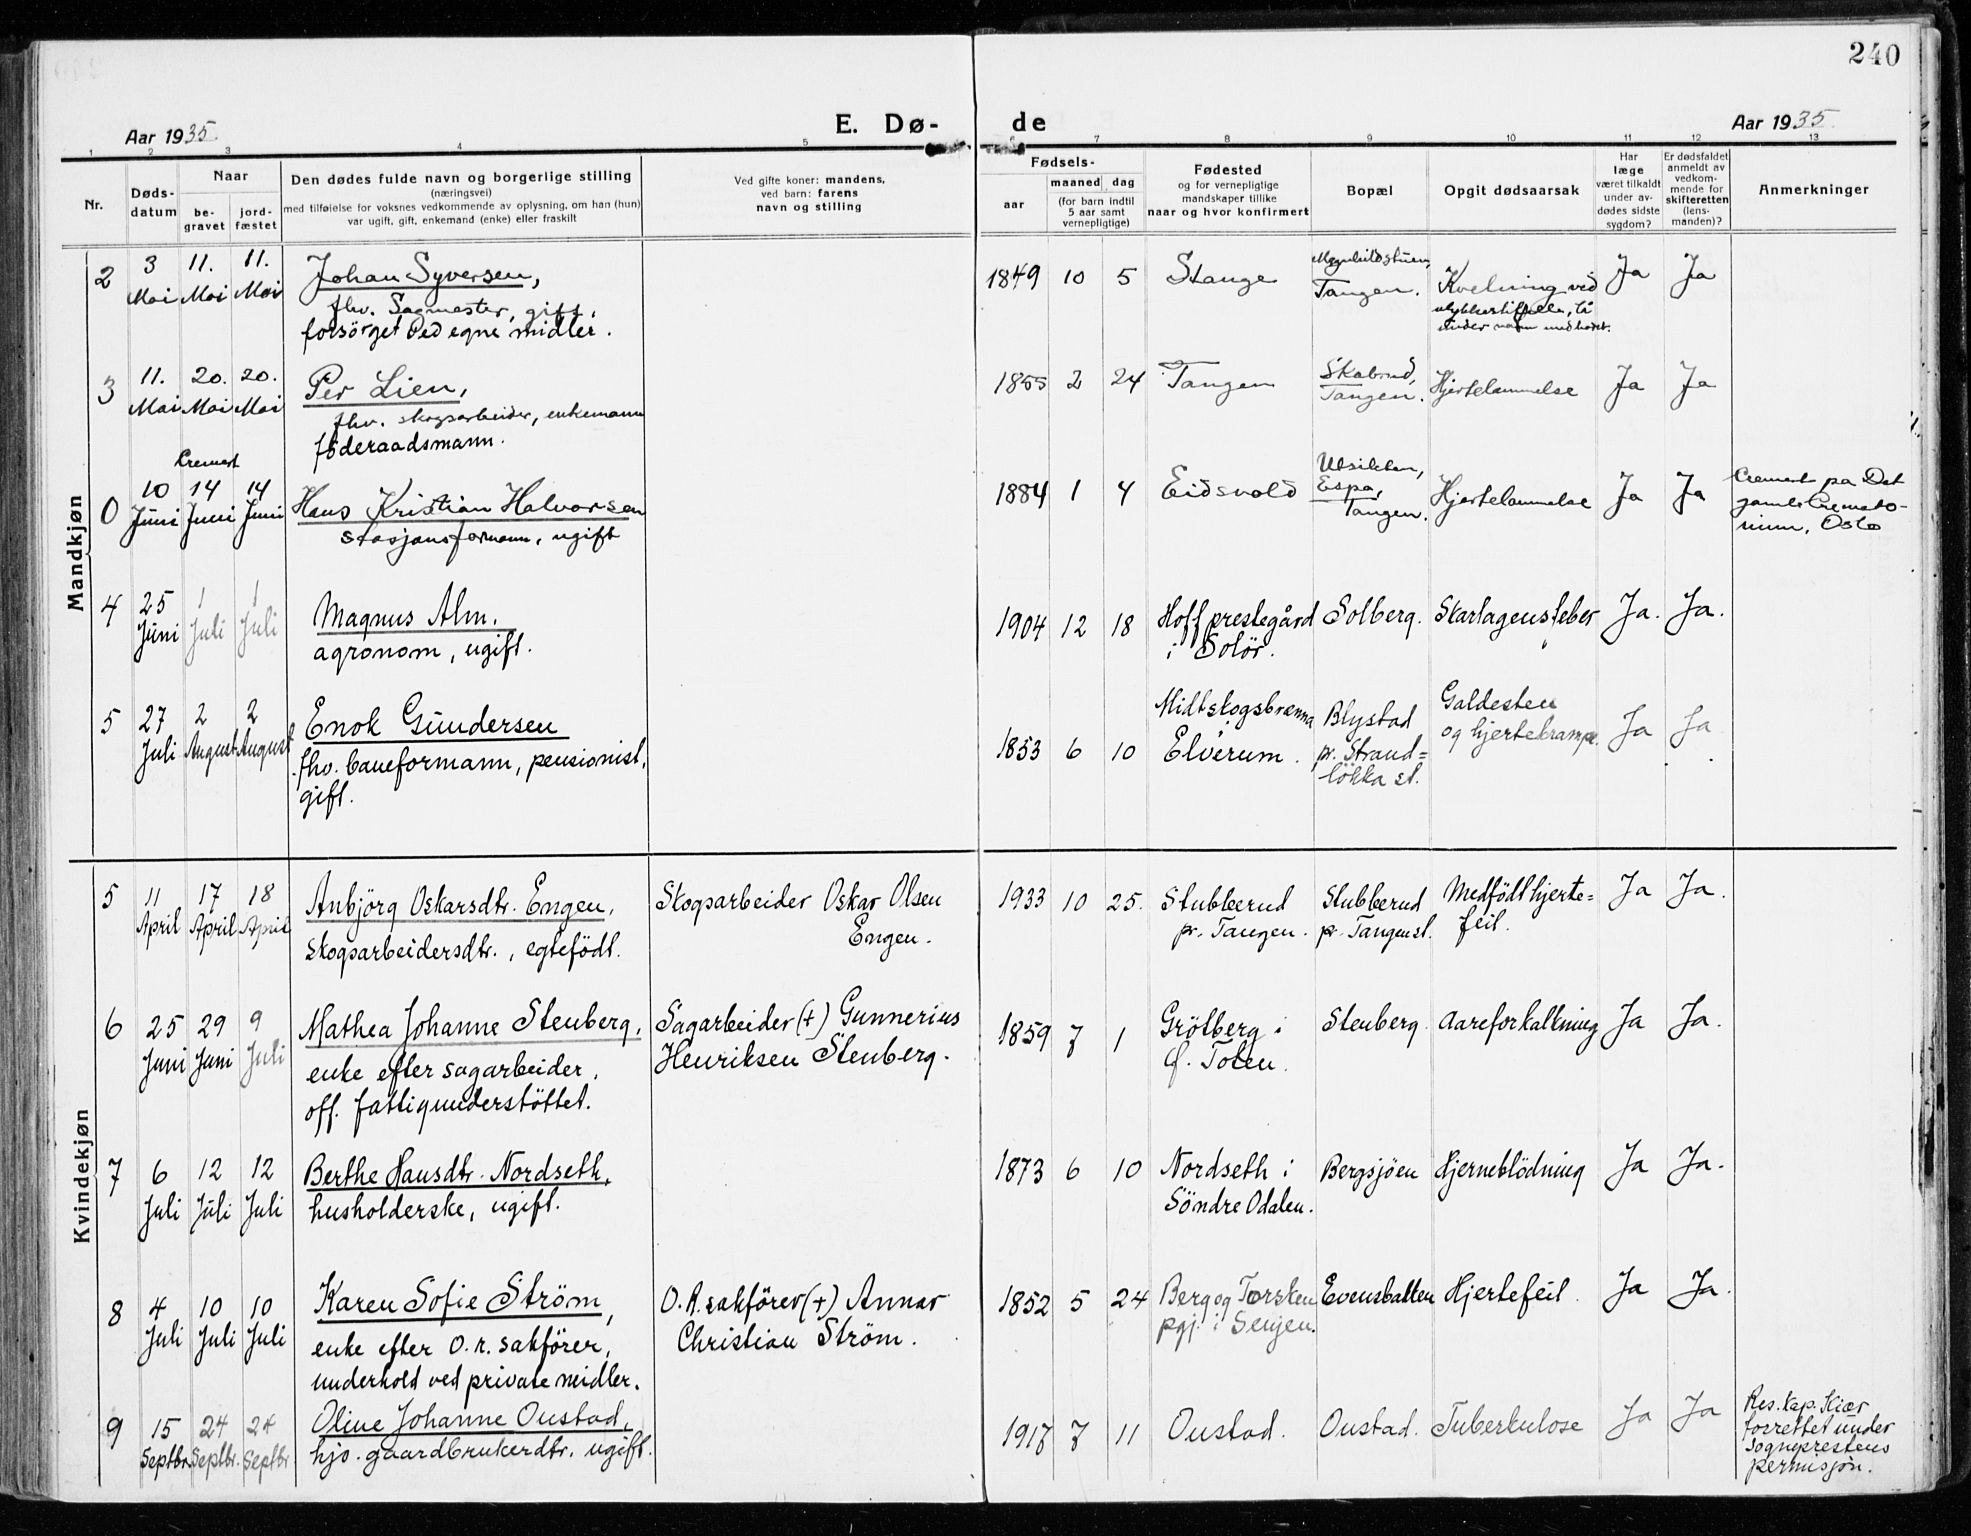 240
Aar 1935.
E. Dø-
de
Aar 1935.
1 2 3 4 5 6 7 8 9 10 11 12 13
Nr.
Døds-
datum
Naar
be-
gravet
jord-
fæstet
Den dødes fulde navn og borgerlige stilling
(næringsvei)
med tilføielse for voksnes vedkommende av oplysning, om han (hun)
var ugift, gift, enkemand (enke) eller fraskilt
Ved gifte koner: mandens,
ved barn: farens
navn og stilling
Fødsels-
aar
maaned dag
(for barn indtil
5 aar samt
vernepligtige)
Fødested
og for vernepligtige
mandskaper tillike
naar og hvor konfirmert
Bopæl
Opgit dødsaarsak
Har
læge
været tilkaldt
under av-
dødes sidste
sygdom?
Er dødsfaldet
anmeldt av
vedkom-
mende for
skifteretten
(lens-
manden)?
Anmerkninger
Mandkjøn
2
3 Mai
11. Mai
11. Mai
Johan Syversen,
fhv. Sagmester, gift,
forsörget ved egne midler.
1849 10 5
Stange
Tangen.
Kvelning ved
ulykkestilfelle, lå
under vann med hodet.
Ja
Ja
3
11. Mai
20. Mai
20. Mai
Per Lien,
fhv. skogsarbeider, enkemann
föderaadsmann.
1855 2 24
Tangen
Skabrud,
Tangen.
Hjertelammelse
Ja
Ja
0
10 Juni
Cremert
14 Juni
14 Juni
Hans Kristian Halvorsen
stasjonsformann, ugift
1884 1 4
Eidsvold
Utsikten,
Espa,
Tangen.
Hjertelammelse
Ja
Ja
Cremert på Det
gamle Cremato-
rium, Oslo
4
25 Juni
1 Juli
1 Juli
Magnus Alm.
agronom, ugift.
1904 12 18
Hoff prestegård
i Solör.
Solberg.
Skarlagensfeber
Ja.
Ja.
5
27 Juli
2 August
2 August
Enok Gundersen
fhv. baneformann, pensionist,
gift.
1853 6 10
Midtskogsbrænna
Elverum.
Blystad
pr. Strand=
lökka st.
Galdesten
og hjertekrampe.
Ja
Ja.
Kvindekjøn
5
11 April
17 April
18 April
Anbjörg Oskarsdtr. Engen,
skogsarbeidersdtr., egtefödt.
Skogsarbeider Oskar Olsen
Engen.
1933 10 25.
Stubberud
pr. Tangen.
Stubberud
pr. Tangen st.
Medfödt hjerte=
feil.
Ja
Ja.
6
25 Juni
29 Juni
9 Juli
Mathea Johanne Stenberg,
enke efter sagarbeider,
off. fattigunderstöttet.
Sagarbeider (+) Gunnerius
Henriksen Stenberg.
1859 7 1
Grötberg i
Ö. Toten.
Stenberg.
Aareforkalkning
Ja
Ja.
7
6 Juli
12 Juli
12 Juli
Berthe Hansdtr. Nordseth,
husholderske, ugift.
1873 6 10
Nordseth i
Söndre Odalen.
Bergsjöen
Hjerneblödning
Ja
Ja.
8
4 Juli
10 Juli
10 Juli
Karen Sofie Ström,
enke efter O.r. sakförer,
underhold ved private midler.
O.R. sakförer (+) Annar
Christian Ström.
1852 5 24
Berg og Torsken
pgj. i Senjen.
Evensbakken
Hjertefeil.
Ja
Ja.
9
15 Septbr.
24 Septbr.
24 Septbr
Oline Johanne Oustad,
hjv. gaardbrukerdtr. ugift.
1917 7 11
Oustad.
Oustad.
Tuberkulose
Ja
Ja
Res. kap. Kiær
forrettet under
sogneprestens
permisjon.